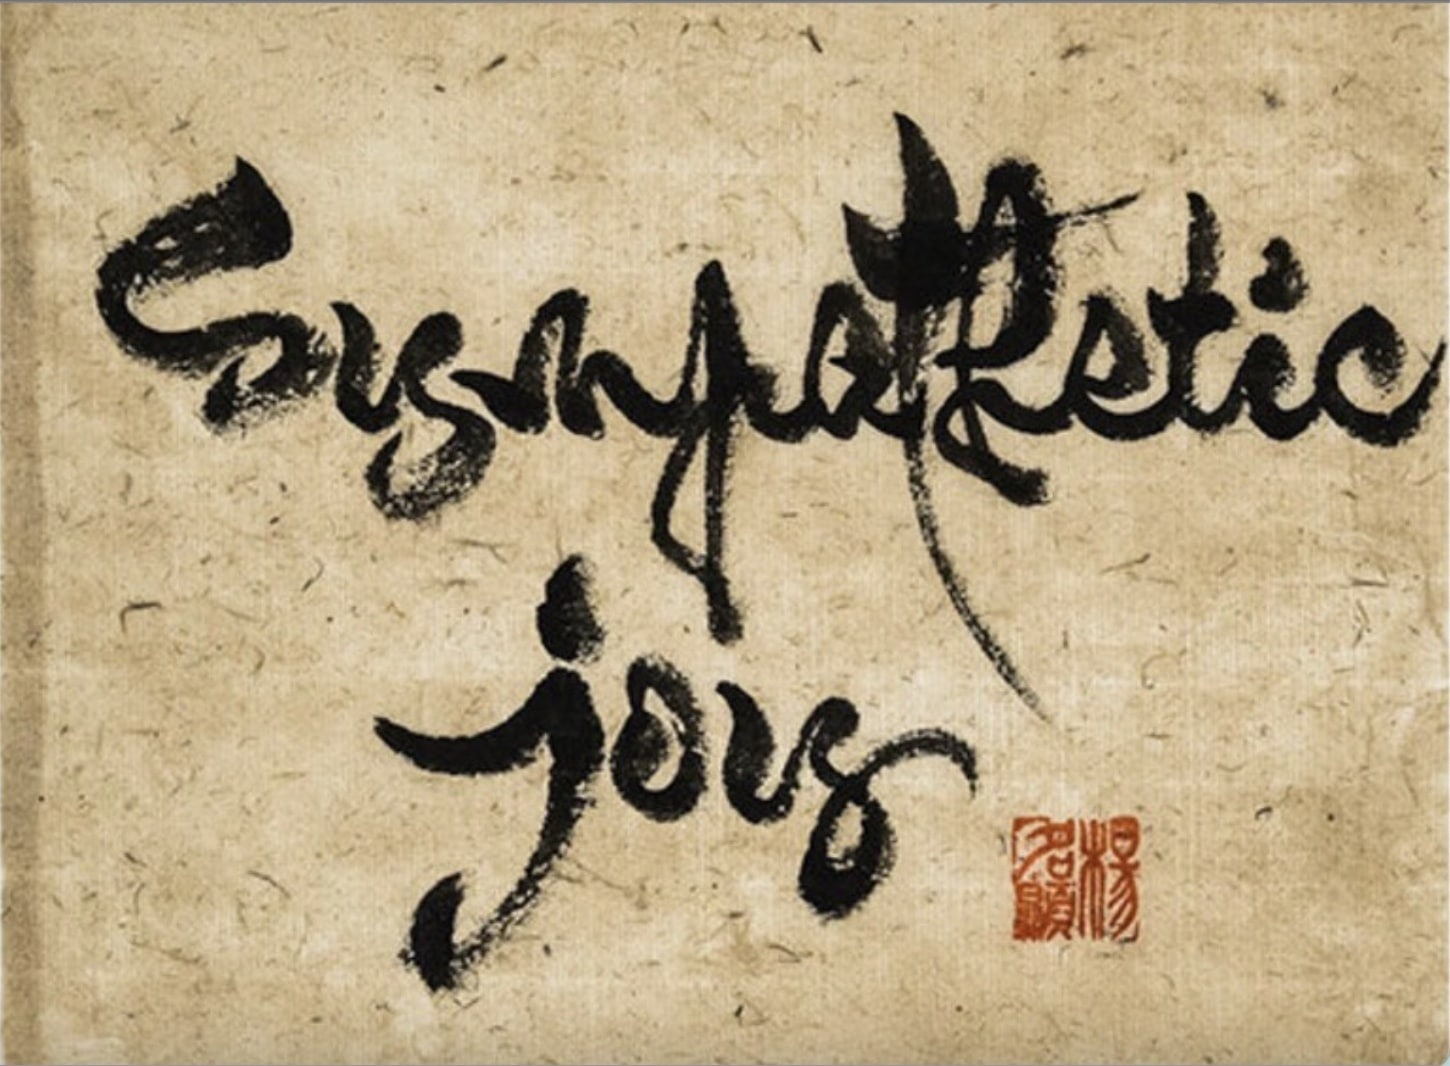 Sympathetic
joy